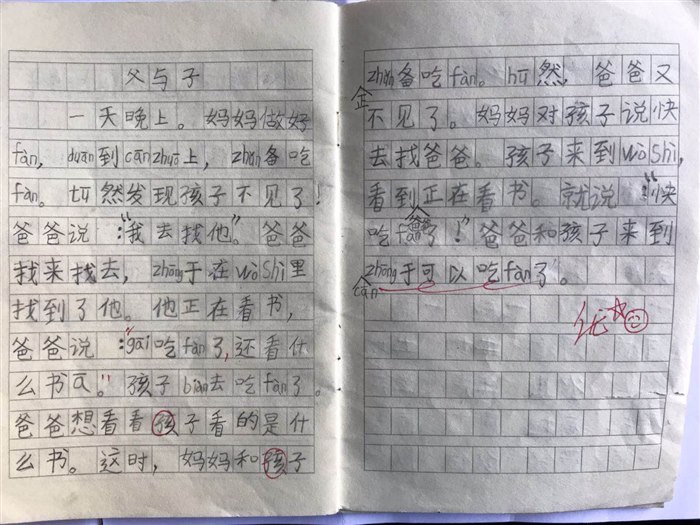 父与子
一天晚上。妈妈做好
fàn，duān到cānzhuō上，zhǔn备吃
fàn。tū然发现孩子不见了！
爸爸说：“我去找他”。爸爸
找来找去，zhōng于在wòShì里
找到了他。他正在看书，
爸爸说：“gāi吃fàn了，还看什
么书ā。”孩子biàn去吃fàn了。
爸爸想看看孩子看的是什
么书。这时，妈妈和孩子
zhǔn备吃fàn。hū然，爸爸又
不见了。妈妈对孩子说快
去找爸爸。孩子来到wòShì，
看到爸爸正在看书。就说：“快
吃fàn了！”爸爸和孩子来到
cān
zhōng于可以吃fàn了。
优